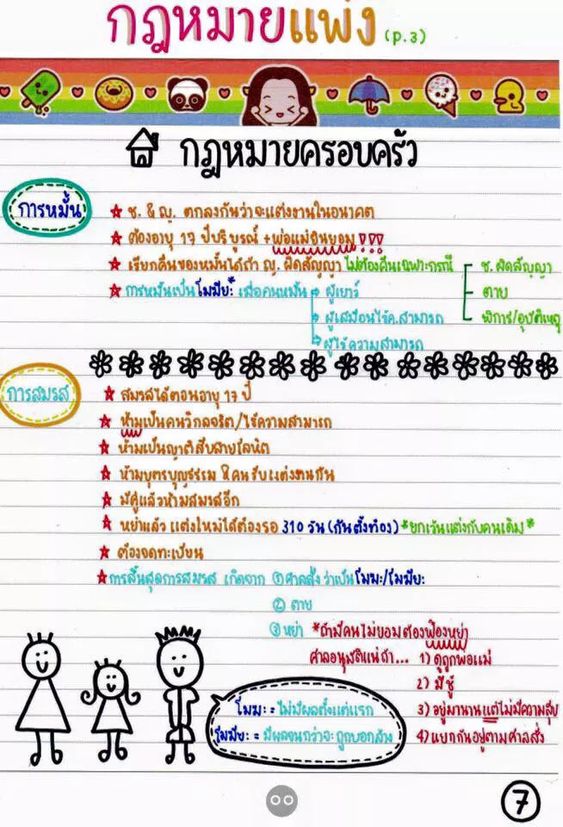 กฎหมายแพ่ง (p.3)
กฎหมายครอบครัว
การหมั้น
★ ช. & ญ. ตกลงกันว่าจะแต่งงานในอนาคต
★ ต้องอายุ 17 ปีบริบูรณ์ + พ่อแม่ยินยอม !!!
★ เรียกคืนของหมั้นได้ถ้า ญ. ผิดสัญญา ไม่ต้องคืนเฉพาะกรณี ช. ผิดสัญญา
ตาย
พิการ/อุบัติเหตุ
★ การหมั้นเป็นโมฆียะ* เมื่อคนหมั้น → ผู้เยาว์
→ ผู้เสมือนไร้ค.สามารถ
→ ผู้ไร้ความสามารถ
การสมรส
★ สมรสได้ตอนอายุ 17 ปี
★ ห้ามเป็นคนวิกลจริต/ไร้ความสามารถ
★ ห้ามเป็นญาติสืบสายโลหิต
★ ห้ามบุตรบุญธรรม & คนรับแต่งงานกัน
★ มีคู่แล้วห้ามสมรสอีก
★ หย่าแล้ว แต่งใหม่ได้ต้องรอ 310 วัน (กันตั้งท้อง) *ยกเว้นแต่งกับคนเดิม*
★ ต้องจดทะเบียน
★ การสิ้นสุดการสมรส เกิดจาก ① ศาลสั่งว่าเป็นโมฆะ/โมฆียะ
② ตาย
③ หย่า *ถ้ามีคนไม่ยอมต้องฟ้องหย่า
ศาลอนุมัติแน่ถ้า... 1) ดูถูกพ่อแม่
2) มีชู้
3) อยู่มานานแต่ไม่มีความสุข
4) แยกกันอยู่ตามศาลสั่ง
โมฆะ = ไม่มีผลตั้งแต่แรก
โมฆียะ = มีผลจนกว่าจะถูกบอกล้าง
7